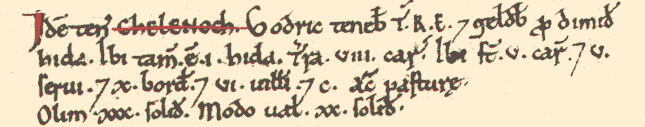 Idē teñ Chelewoch. Godric teneb̄ T.R.E. ⁊ geldb̄ ꝓ dimid̄
hida. Ibi tam̄.ē.i. hida. T̄ra. viii. car̄. Ibi st̄. v. car̄. ⁊ v.
serui. ⁊ x. bord̄. ⁊ vi. uilli. ⁊ c. ac̄ pasturę.
Olim. xxx. solid̄. Modo ual. xx. solid̄.